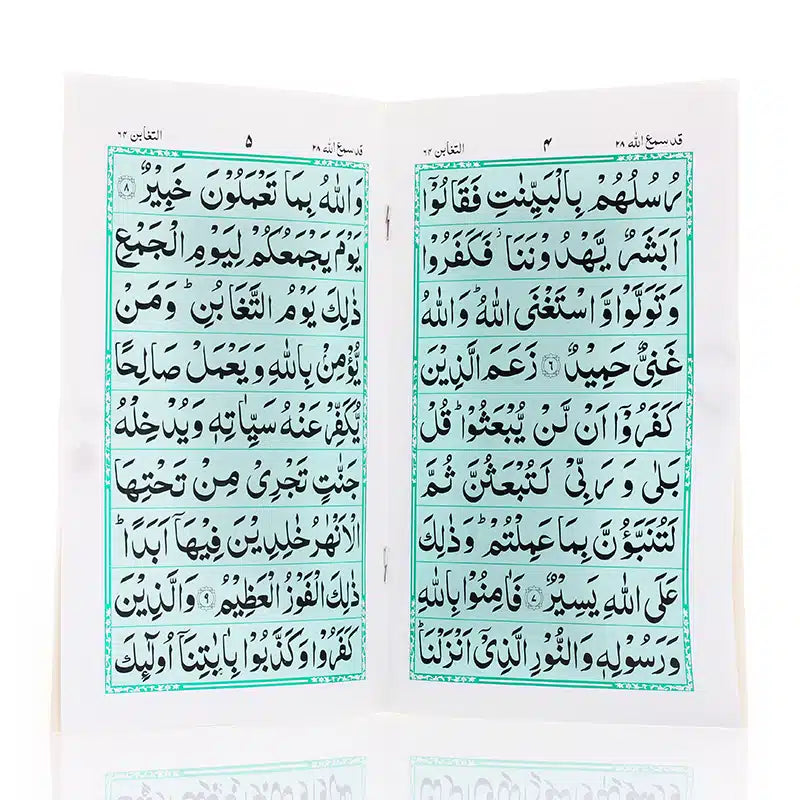 قد سمع الله ٢٨ ۴ التغابن ٦۴
رُسُلُهُمْ بِالْبَيِّنٰتِ فَقَالُوْۤا
اَبَشَرٌ يَّهْدُوْنَنَا ۫ فَكَفَرُوْا
وَتَوَلَّوْا وَّاسْتَغْنَى اللّٰهُ ؕ وَاللّٰهُ
غَنِىٌّ حَمِيْدٌ ۝٦ زَعَمَ الَّذِيْنَ
كَفَرُوْۤا اَنْ لَّنْ يُّبْعَثُوْا ؕ قُلْ
بَلٰى وَرَبِّىْ لَتُبْعَثُنَّ ثُمَّ
لَتُنَبَّؤُنَّ بِمَا عَمِلْتُمْ ؕ وَذٰلِكَ
عَلَى اللّٰهِ يَسِيْرٌ ۝٧ فَاٰمِنُوْا بِاللّٰهِ
وَرَسُوْلِهٖ وَالنُّوْرِ الَّذِىْۤ اَنْزَلْنَا ؕ
قد سمع الله ٢٨ ۵ التغابن ٦۴
وَاللّٰهُ بِمَا تَعْمَلُوْنَ خَبِيْرٌ ۝٨
يَوْمَ يَجْمَعُكُمْ لِيَوْمِ الْجَمْعِ
ذٰلِكَ يَوْمُ التَّغَابُنِ ؕ وَمَنْ
يُّؤْمِنْۢ بِاللّٰهِ وَيَعْمَلْ صَالِحًا
يُّكَفِّرْ عَنْهُ سَيِّاٰتِهٖ وَيُدْخِلْهُ
جَنّٰتٍ تَجْرِىْ مِنْ تَحْتِهَا
الْاَنْهٰرُ خٰلِدِيْنَ فِيْهَاۤ اَبَدًا ؕ
ذٰلِكَ الْفَوْزُ الْعَظِيْمُ ۝٩ وَالَّذِيْنَ
كَفَرُوْا وَكَذَّبُوْا بِاٰيٰتِنَاۤ اُولٰٓئِكَ